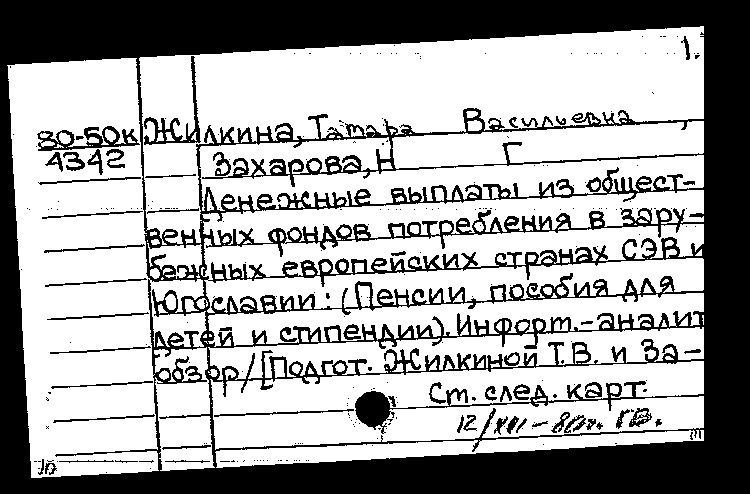 1.
80-50к Жилкина, Тамара Васильевна,
4342 Захарова, Н Г
Денежные выплаты из общест-
венных фондов потребления в зару-
бежных европейских странах СЭВ и
Югославии: (Пенсии, пособия для
детей и стипендии). Информ.-аналит
обзор/[Подгот. Жилкиной Т.В. и За-
Ст. след. карт.
12/XII-80г.